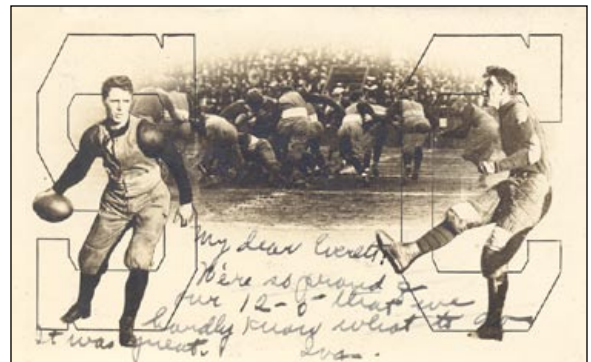 S C
My dear Everett,
We're so proud of
our 12-0 that we
hardly know what to do
It was great.
Iva-